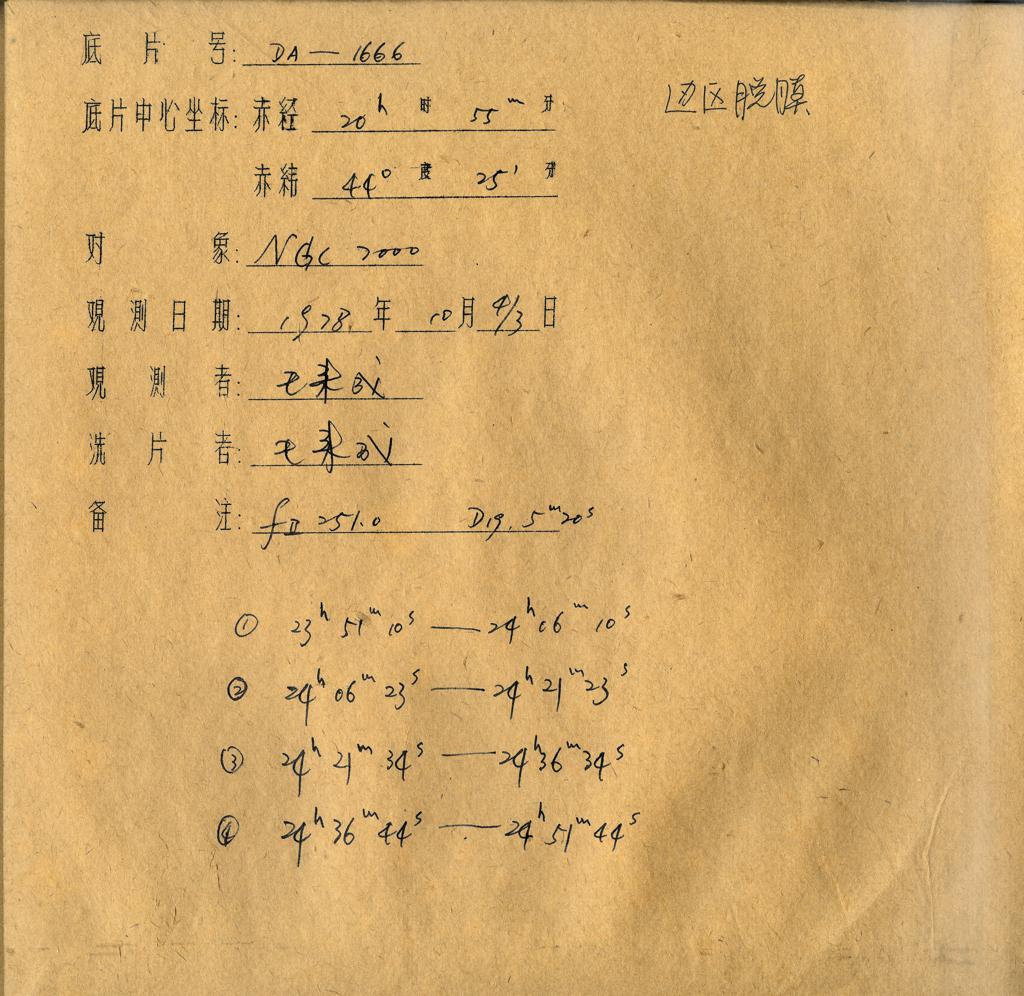 底片号: DA—1666
边区脱膜
底片中心坐标: 赤经 20h 时 55m 分
赤纬 44° 度 25' 分
对象: NGC 7000
观测日期: 1978年 10月 4/3日
观测者:
洗片者:
备注: fII 251.0 D19. 5m20s
① 23h 51m 10s — 24h 06m 10s
② 24h 06m 23s — 24h 21m 23s
③ 24h 21m 34s — 24h 36m 34s
④ 24h 36m 44s — 24h 51m 44s